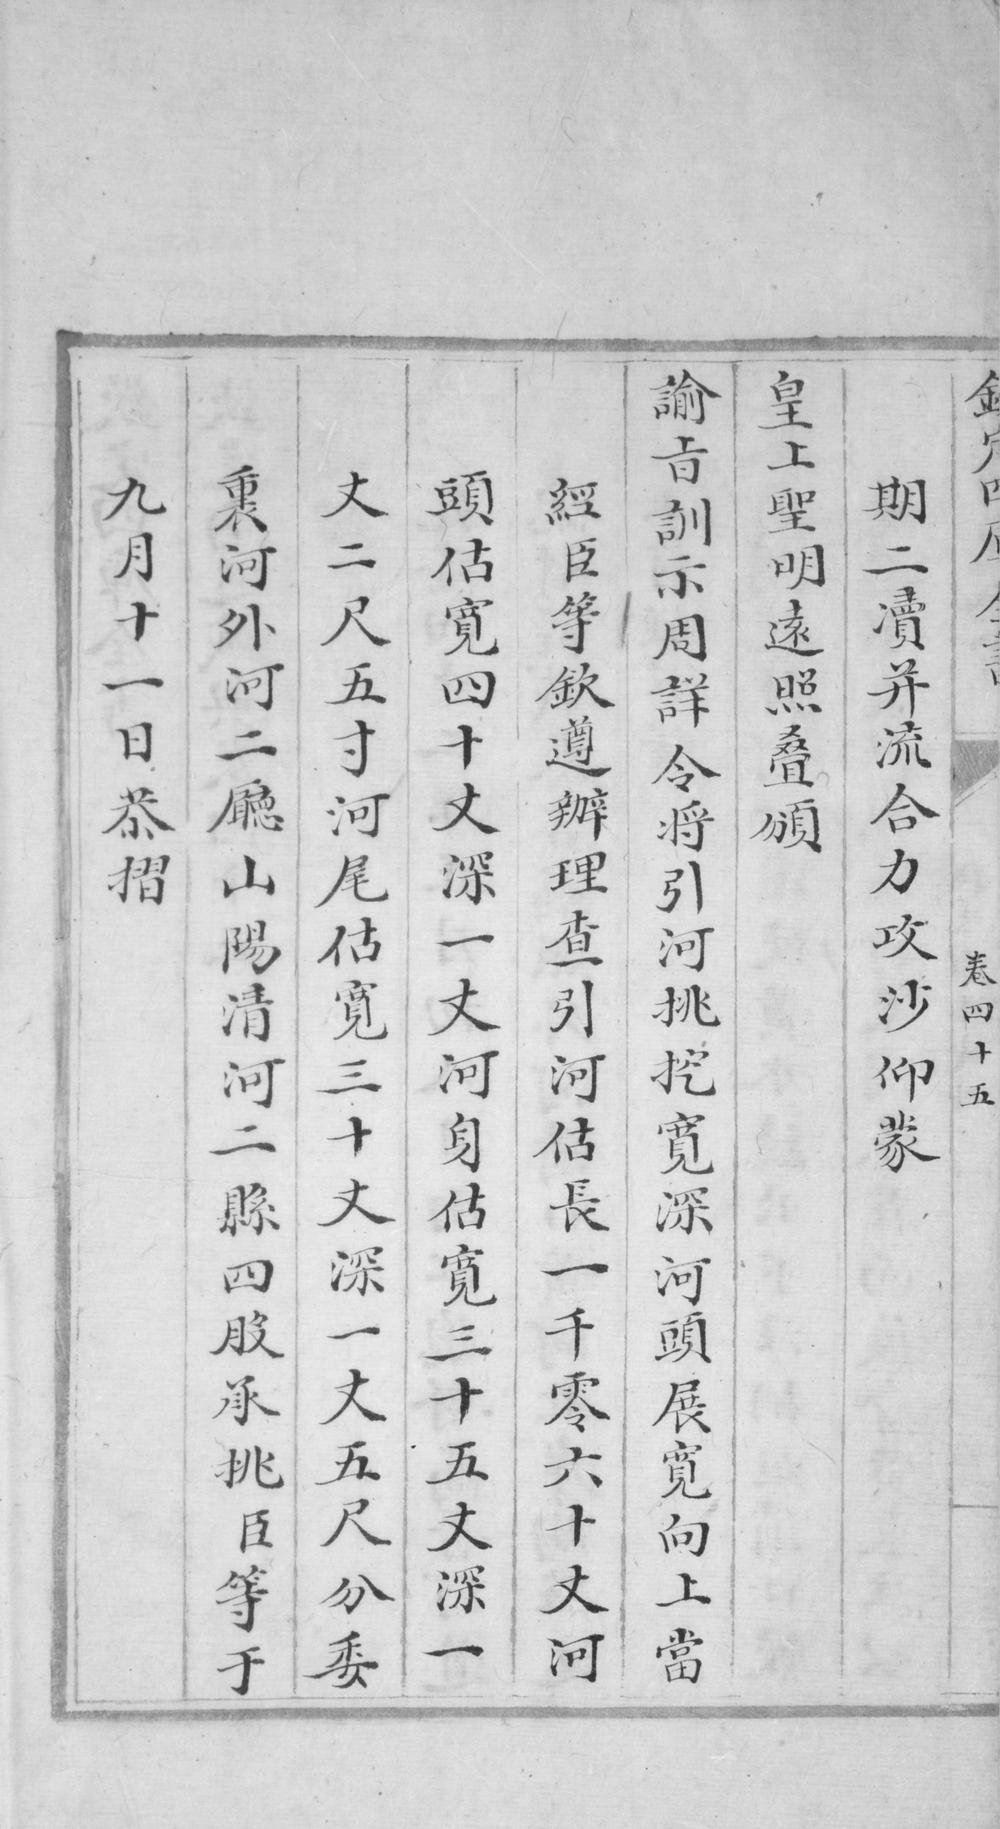 欽定四庫全書
卷四十五
期二瀆并流合力攻沙仰蒙
皇上聖明遠照叠頒
諭旨訓示周詳令將引河挑挖寬深河頭展寬向上當
經臣等欽遵辦理查引河估長一千零六十丈河
頭估寬四十丈深一丈河身估寬三十五丈深一
丈二尺五寸河尾估寬三十丈深一丈五尺分委
裏河外河二廳山陽清河二縣四股承挑臣等于
九月十一日恭摺